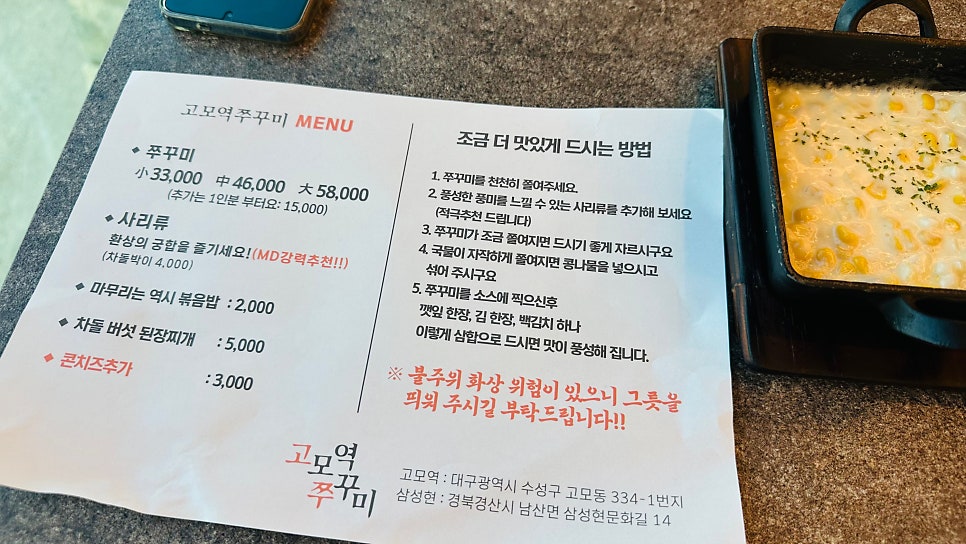 고모역쭈꾸미 MENU
◆ 쭈꾸미
小 33,000 中 46,000 大 58,000
(추가는 1인분 부터요: 15,000)
◆ 사리류
환상의 궁합을 즐기세요!(MD강력추천!!)
(차돌박이 4,000)
◆ 마무리는 역시 볶음밥 : 2,000
◆ 차돌 버섯 된장찌개 : 5,000
◆ 콘치즈추가 : 3,000
조금 더 맛있게 드시는 방법
1. 쭈꾸미를 천천히 쫄여주세요.
2. 풍성한 풍미를 느낄 수 있는 사리류를 추가해 보세요
(적극추천 드립니다)
3. 쭈꾸미가 조금 쫄여지면 드시기 좋게 자르시구요
4. 국물이 자작하게 쫄여지면 콩나물을 넣으시고
섞어 주시구요
5. 쭈꾸미를 소스에 찍으신후
깻잎 한장, 김 한장, 백김치 하나
이렇게 삼합으로 드시면 맛이 풍성해 집니다.
※ 불주위 화상 위험이 있으니 그릇을
띄워 주시길 부탁드립니다!!
고모역
쭈꾸미
고모역 : 대구광역시 수성구 고모동 334-1번지
삼성현 : 경북경산시 남산면 삼성현문화길 14